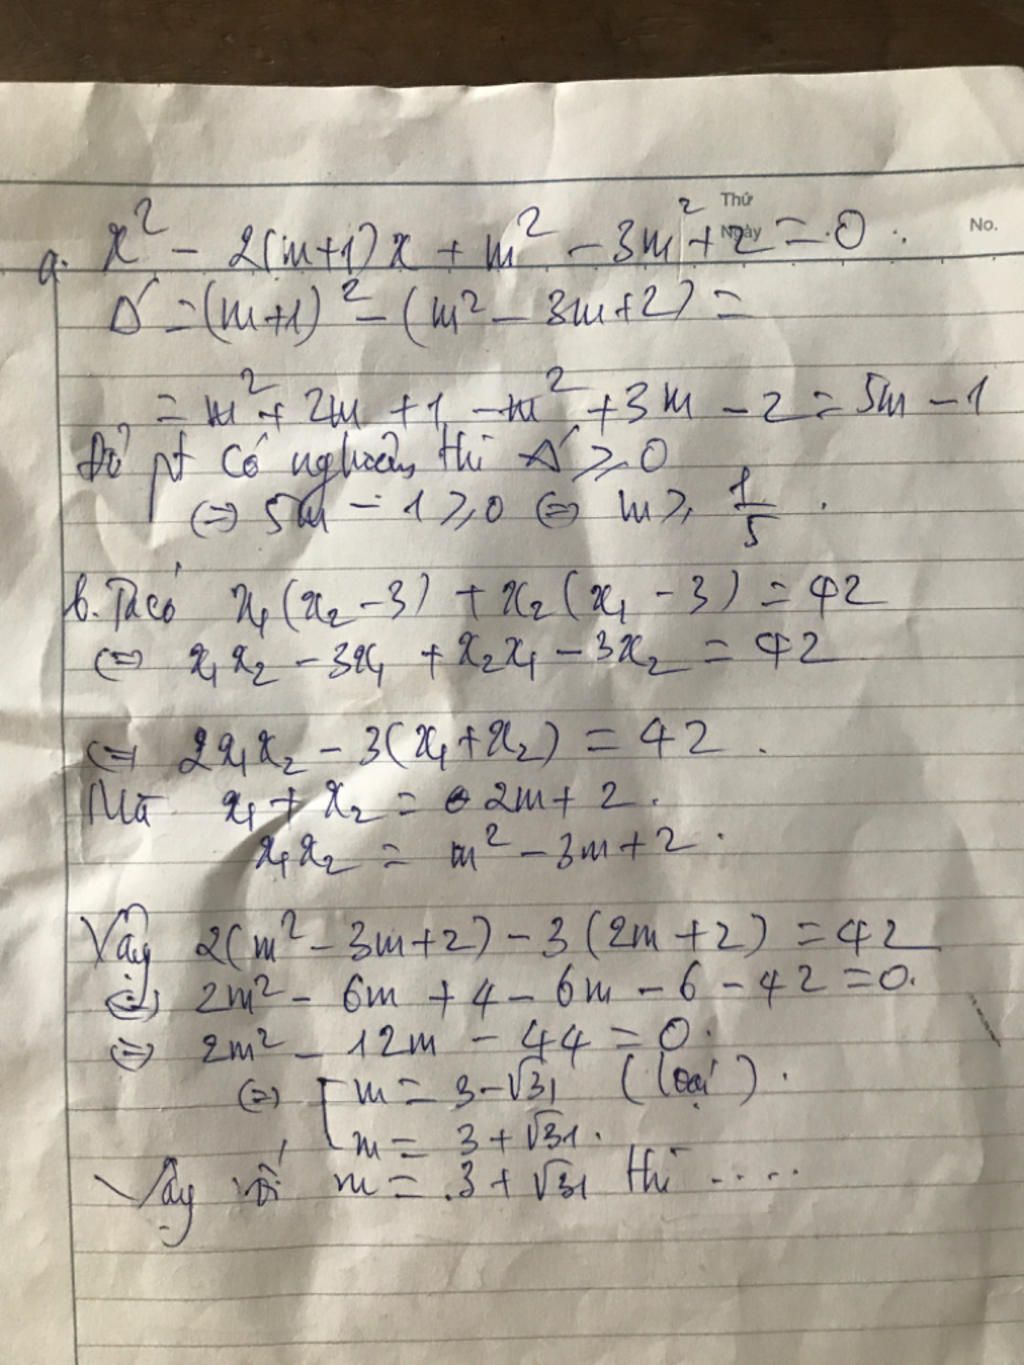 Thứ
Ngày
No.
a. x² - 2(m+1)x + m² - 3m² + 2 = 0.
Δ' = (m+1)² - (m² - 3m + 2) =
= m² + 2m + 1 - m² + 3m - 2 = 5m - 1
Để pt có nghiệm thì Δ' ≥ 0
⇔ 5m - 1 ≥ 0 ⇔ m ≥ 1/5.
b. Ta có x₁(x₂ - 3) + x₂(x₁ - 3) = 42
⇔ x₁x₂ - 3x₁ + x₂x₁ - 3x₂ = 42
⇔ 2x₁x₂ - 3(x₁ + x₂) = 42.
Mà x₁ + x₂ = 2m + 2.
x₁x₂ = m² - 3m + 2.
Vậy 2(m² - 3m + 2) - 3(2m + 2) = 42
⇔ 2m² - 6m + 4 - 6m - 6 - 42 = 0.
⇔ 2m² - 12m - 44 = 0.
⇔ [ m = 3 - √31 (loại).
m = 3 + √31.
Vậy với m = 3 + √31 thì ....